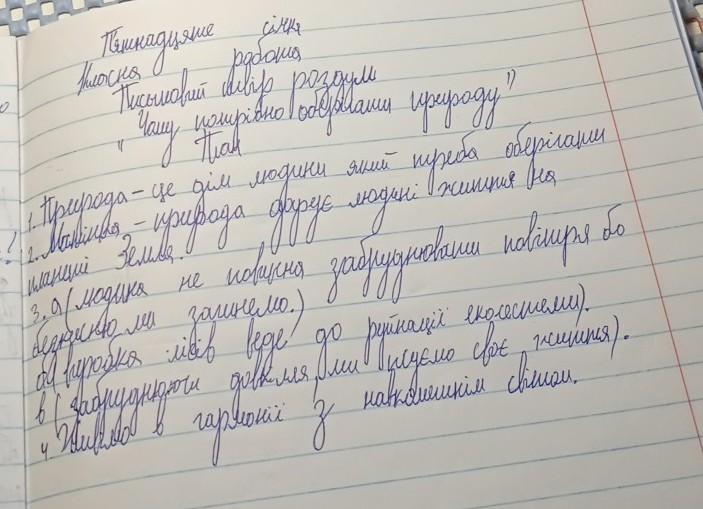 Пятнадцяте січня
Класна робота
Письмовий твір роздум
"Чому потрібно оберігати природу"
План
1. Природа – це дім людини який треба оберігати
2. – природа дарує людині життя на
планеті Земля.
3. а(людина не повинна забруднювати повітря бо
без ми загинемо.)
б) виробка лісів веде до руйнації екосестеми).
в (забруднюючи довкілля, ми псуємо своє життя).
4 Живімо в гармонії з навколишнім світом.